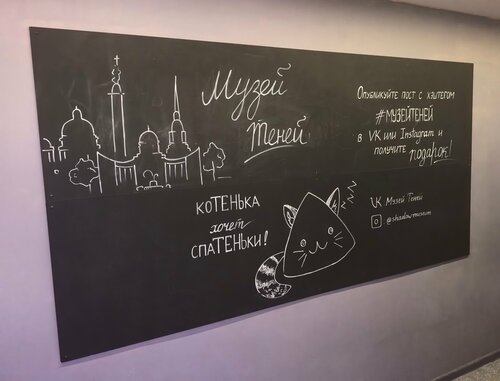 Музей
теней
Опубликуйте пост с хэштегом
#МУЗЕЙТЕНЕЙ
в VK или Instagram и
получите подарок!
КОТЕНЬКА
хочет
спаТЕНЬки!
VK Музей Теней
@shadowmuseum